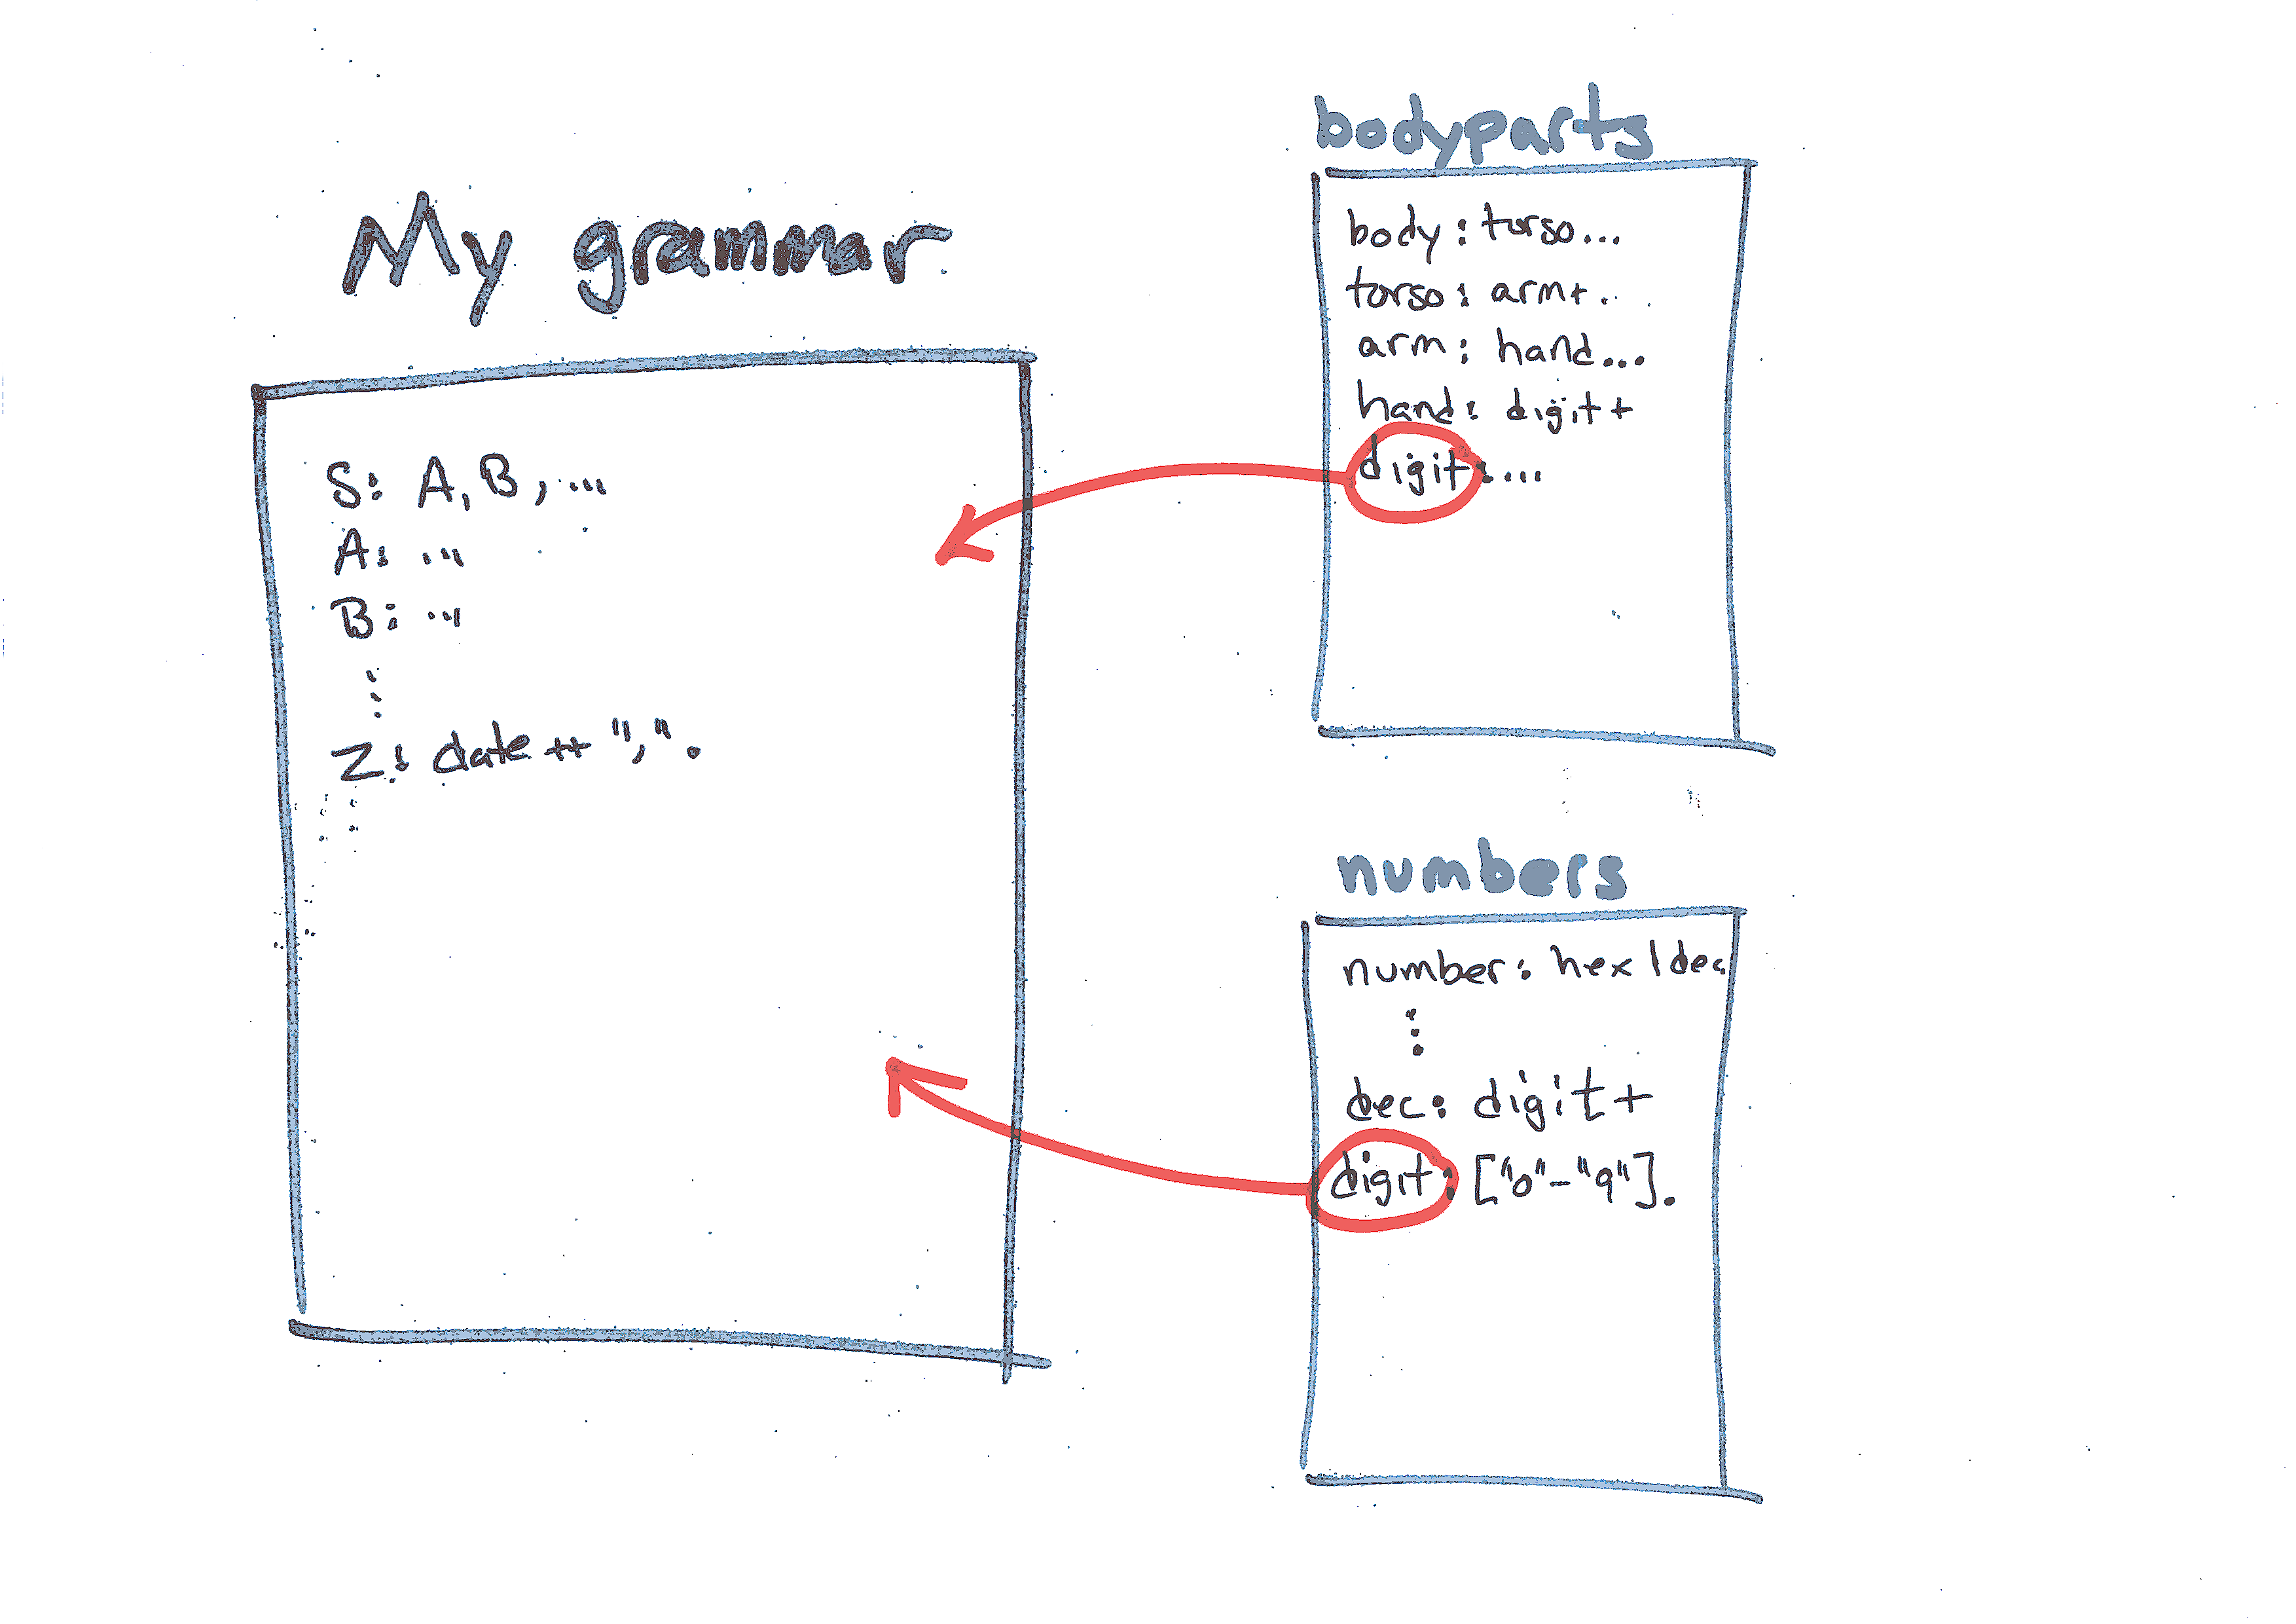 My grammar
S: A, B, ...
A: ...
B: ...
⋮
Z: date ++ ",".
⋮
bodyparts
body: torso...
torso: arm+...
arm: hand...
hand: digit+
digit: ...
numbers
number: hex | dec.
⋮
dec: digit+
digit: ["0"-"9"].